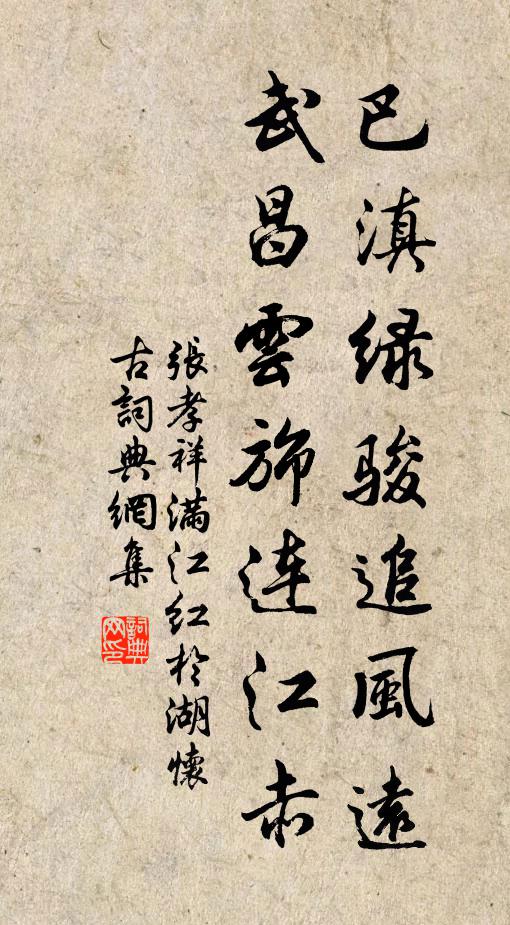 巴滇緑骏追風遠
武昌雲旆連江赤
張孝祥滿江红於湖懷
古詞典網集
詞典
网印